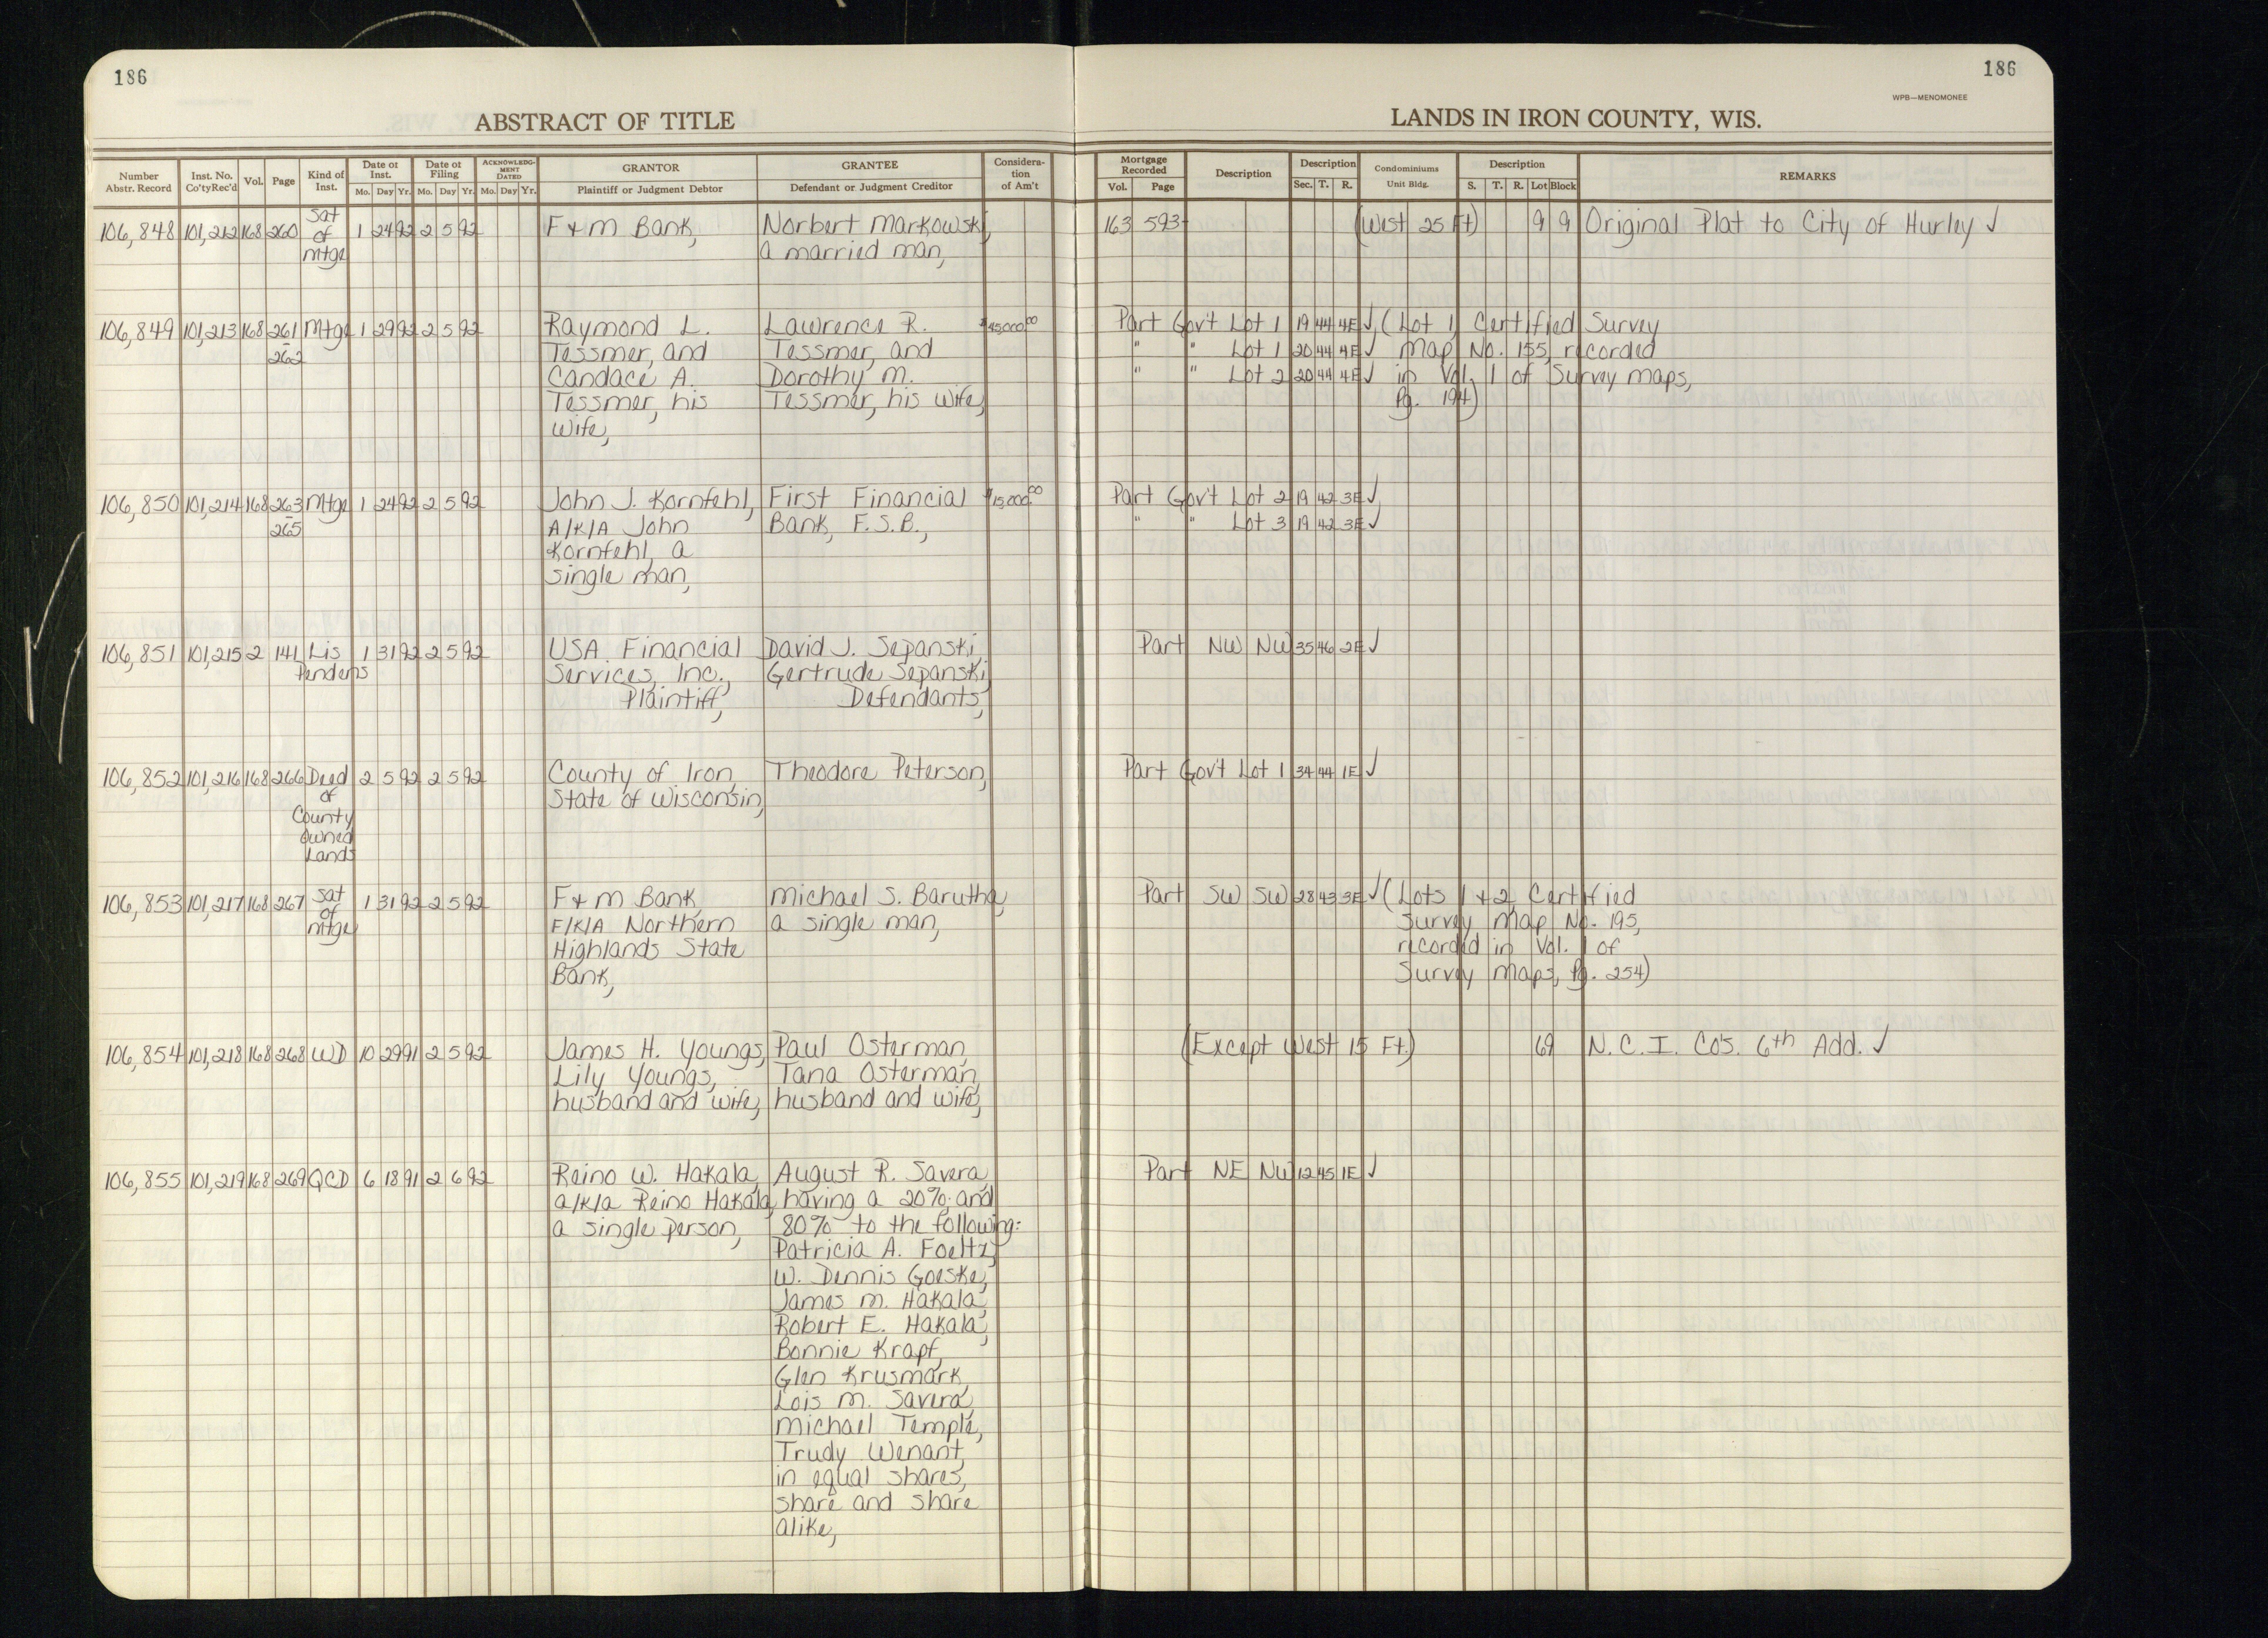 186
186
WPB—MENOMONEE
ABSTRACT OF TITLE
LANDS IN IRON COUNTY, WIS.
Number Abstr. Record | Inst. No. Co'tyRec'd | Vol. | Page | Kind of Inst. | Date of Inst. Mo. Day Yr. | Date of Filing Mo. Day Yr. | ACKNOWLEDGMENT DATED Mo. Day Yr. | GRANTOR Plaintiff or Judgment Debtor | GRANTEE Defendant or Judgment Creditor | Consideration of Am't | Mortgage Recorded Vol. Page | Description | Description Sec. T. R. | Condominiums Unit Bldg. | Description S. T. R. Lot Block | REMARKS
106,848 101,212 168 260 Sat 1 24 92 2 5 92 F & M Bank, Norbert Markowski, 163 593 (West 25 Ft) 9 9 Original Plat to City of Hurley ✓
of a married man,
Mtge
106,849 101,213 168 261 Mtge 1 29 92 2 5 92 Raymond L. Lawrence R. $45000.00 Part Gov't Lot 1 19 44 4E ✓, (Lot 1, Certified Survey
-262 Tessmer, and Tessmer, and " " Lot 1 20 44 4E ✓ Map No. 155, recorded
Candace A. Dorothy M. " " Lot 2 20 44 4E ✓ in Vol. 1 of Survey Maps,
Tessmer, his Tessmer, his wife, Pg. 194)
wife,
106,850 101,214 168 263 Mtge 1 24 92 2 5 92 John J. Kornfehl, First Financial $15,000.00 Part Gov't Lot 2 19 42 3E ✓
-265 A/K/A John Bank, F.S.B., " " Lot 3 19 42 3E ✓
Kornfehl, a
single man,
106,851 101,215 2 141 Lis 1 31 92 2 5 92 USA Financial David J. Sepanski, Part NW NW 35 46 2E ✓
Pendens Services, Inc., Gertrude Sepanski,
Plaintiff, Defendants,
106,852 101,216 168 266 Deed 2 5 92 2 5 92 County of Iron, Theodore Peterson, Part Gov't Lot 1 34 44 1E ✓
of State of Wisconsin,
County
owned
Lands
106,853 101,217 168 267 Sat 1 31 92 2 5 92 F & M Bank, Michael S. Barutha, Part SW SW 28 43 3E ✓ (Lots 1 & 2, Certified
of F/K/A Northern a single man, Survey Map No. 195,
Mtge Highlands State recorded in Vol. 1 of
Bank, Survey Maps, Pg. 254)
106,854 101,218 168 268 WD 10 29 91 2 5 92 James H. Youngs, Paul Osterman, (Except West 15 Ft.) 69 N.C.I. Co's. 6th Add. ✓
Lily Youngs, Tana Osterman,
husband and wife, husband and wife,
106,855 101,219 168 269 QCD 6 18 91 2 6 92 Reino W. Hakala, August R. Savera, Part NE NW 12 45 1E ✓
a/k/a Reino Hakala, having a 20% and
a single person, 80% to the following:
Patricia A. Foeltz,
W. Dennis Goeske,
James M. Hakala,
Robert E. Hakala,
Bonnie Krapf,
Glen Krusmark,
Lois M. Savera,
Michael Temple,
Trudy Wenant,
in equal shares,
share and share
alike,